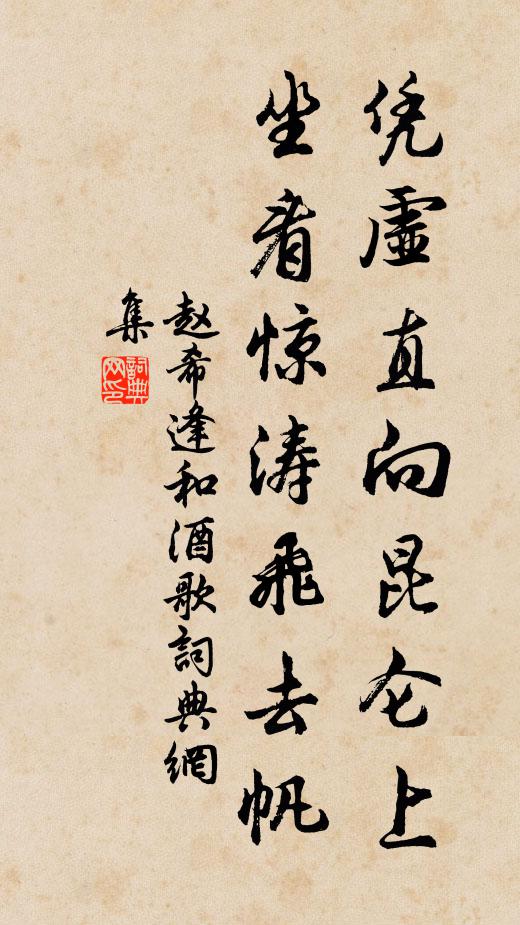 凭虚直向昆仑上
坐看惊涛飛去帆
赵希逢和酒歌詞典網
集
詞典
网印